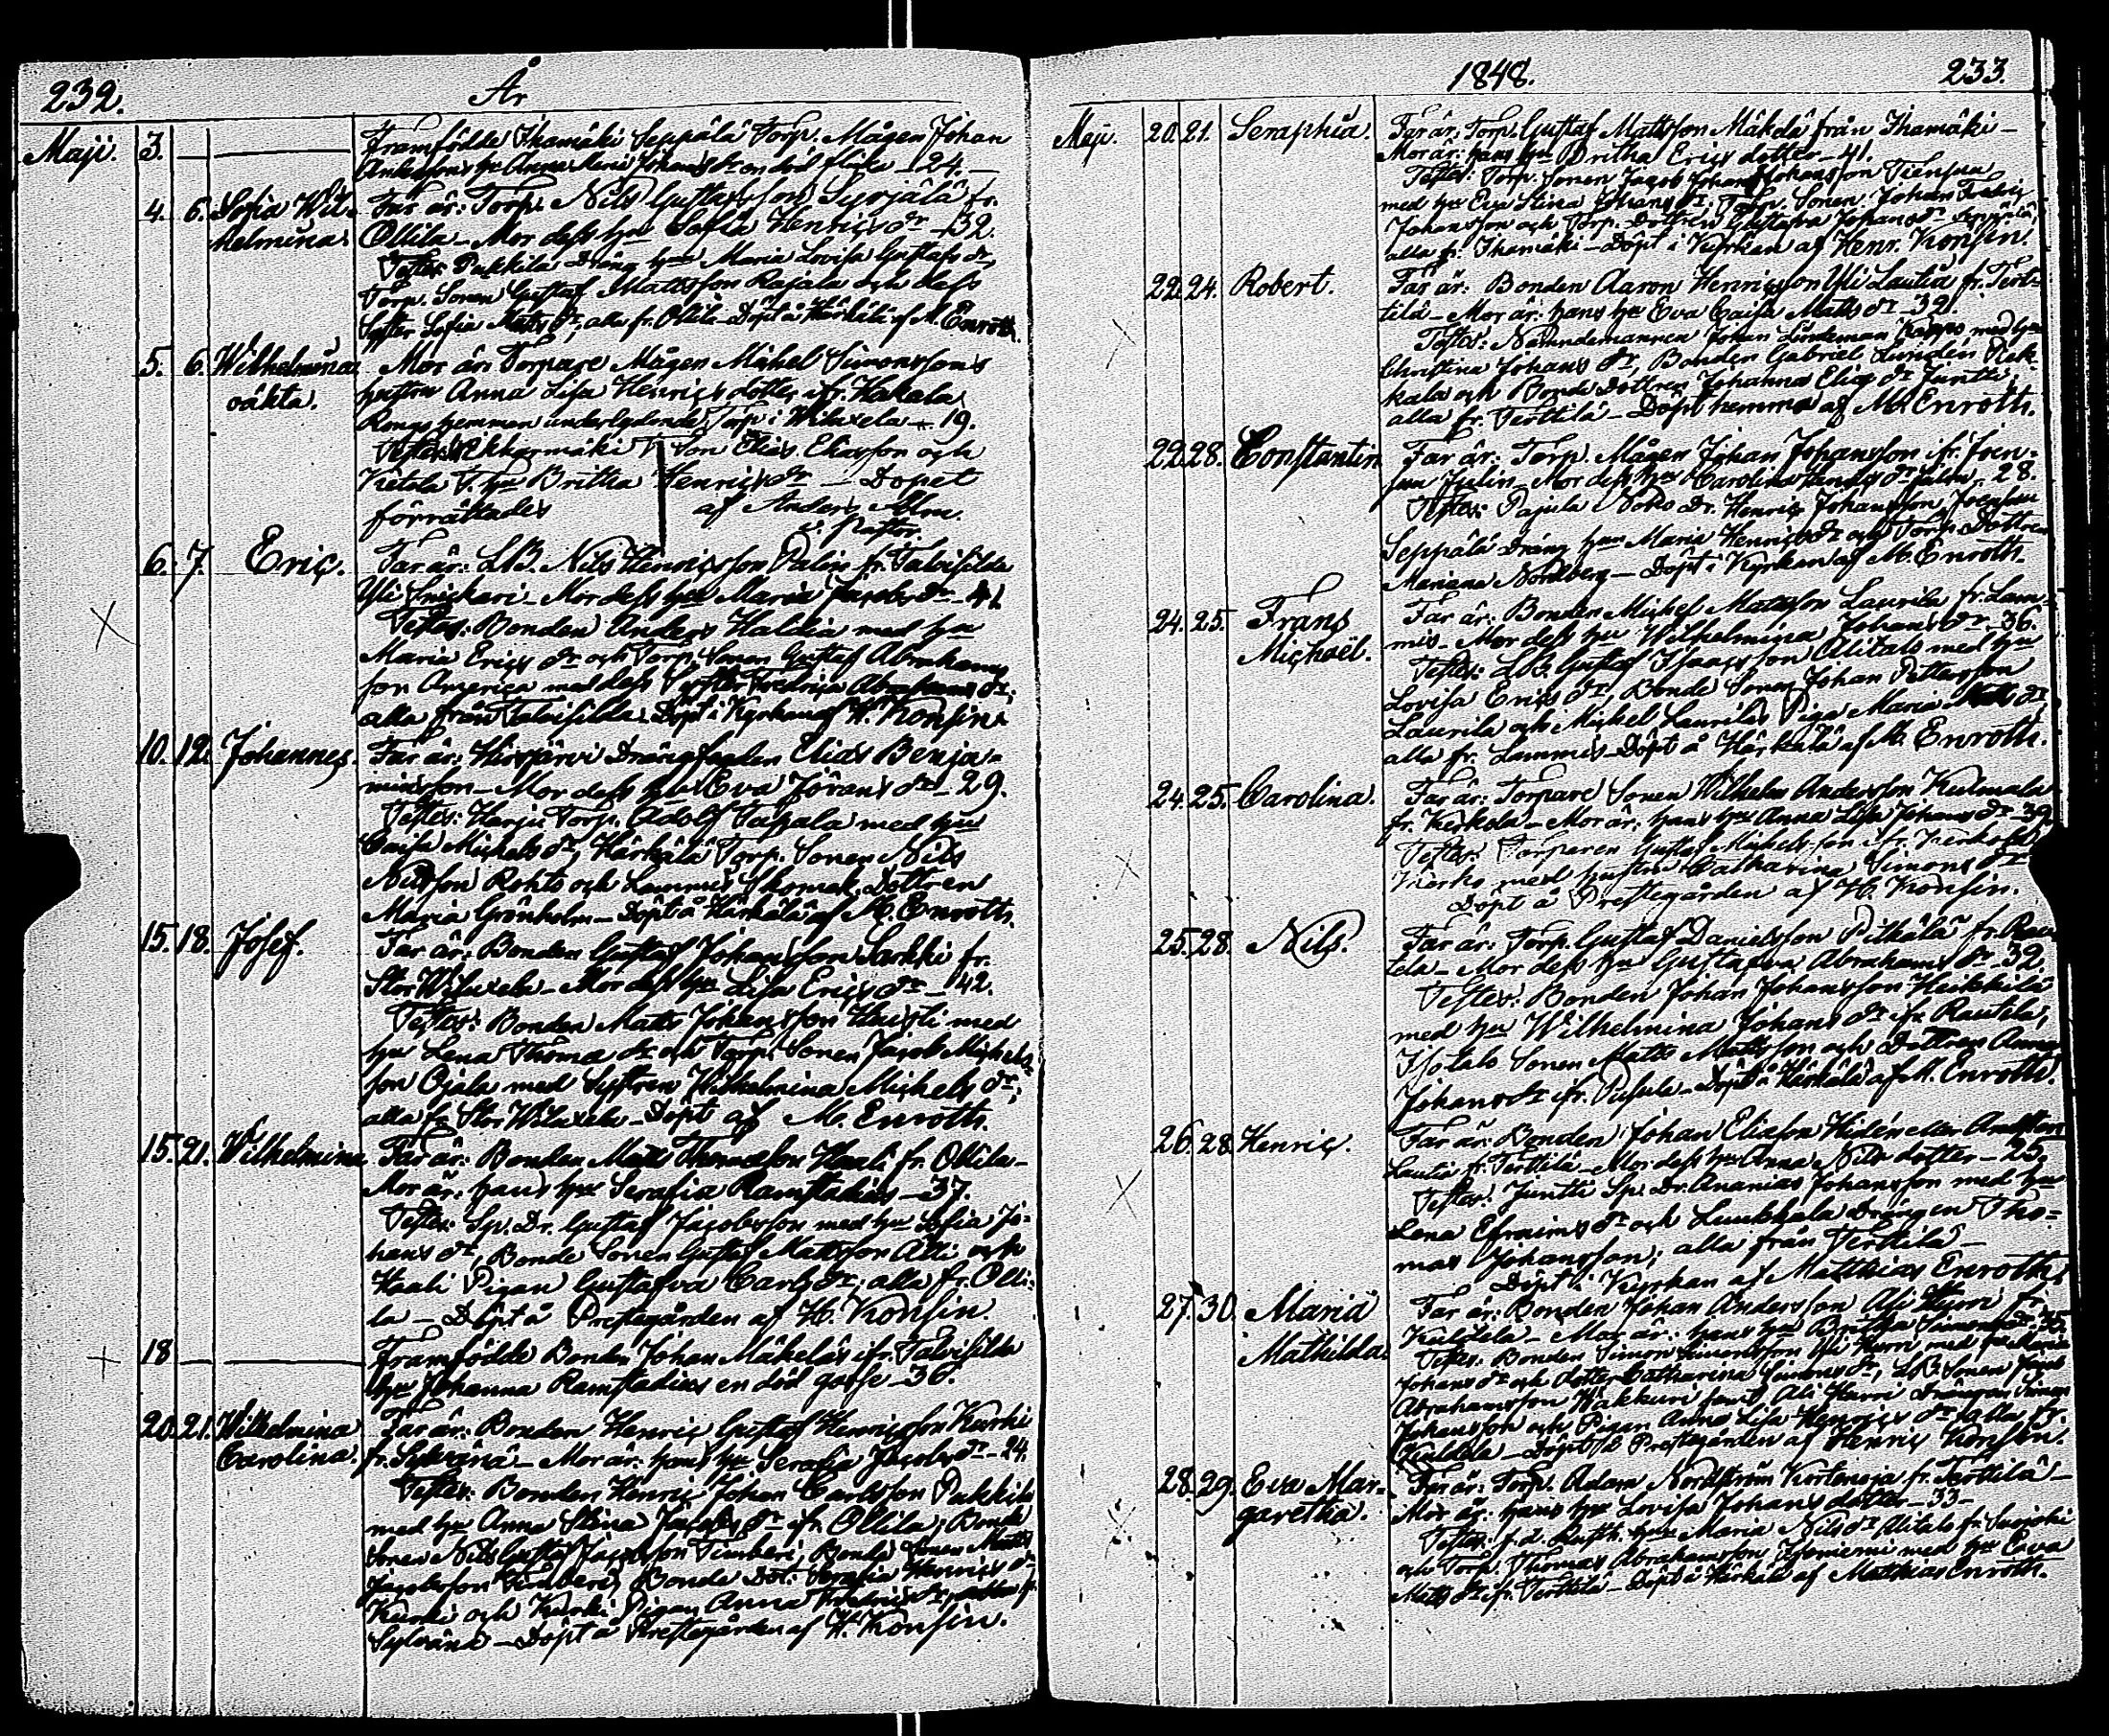 232. År
Maji. 3. Framfödde Ihamäki Seppälä Torp. Mågen Johan
Anderssons hu Anna Maria Johans dr en död flicka - 24. -
4. 6. Sofia Wil- Far är: Torp. Nils Gustafsson Syrjälä fr.
helmina. Ollila - Mor dess hu Sofia Henrics dr - 32.
Testes: Pukkila Dräng hu Maria Lovisa Gustafs dr,
Torp. Sonen Gustaf Mattsson Rajala och dess
Syster Sofia Matts dr, alla fr. Ollila - Döpt å Härkälä af M. Enroth.
5. 6. Wilhelmina Mor är: Torpare Mågen Mickel Simonssons
oäkta. hustru Anna Lisa Henrics dotter ifr. Hakala
Kongs hemman underlydende Torp i Wiluxela - 19.
Testes: T. Son Elias Eliasson och
Ketola T. hu Britha Henrics dr - Dopet
förrättades af Anders Alm.
v. Pastor.
6. 7. Eric. Far är: LB. Nils Henricsson Palin fr. Talvisilda
Yli Knickari - Mor dess hu Maria Jacobs dr - 41.
Testes: Bonden Anders Haldia med hu
Maria Erics dr och Torp. Sonen Gustaf Abrahams
son America med dess Syster Fredrica Abrahams dr;
alla från Talvisilda. Döpt i Kyrkan af H. Konsin.
10. 12. Johannes. Far är: Hirsjärvi Drängfogden Elias Benja-
minsson - Mor dess hu Eva Görans dr - 29.
Testes: Harju Torp. Adolf Tappala med hu
Caisa Michels dr, Härkälä Torp. Sonen Nils
Nilsson Rohto och Lammis Skomak. Dottren
Maria Grönholm - Döpt å Härkälä af M. Enroth.
15. 18. Josef. Far är: Bonden Gustaf Johansson Sarkki fr.
Stor Wiluxela - Mor dess hu Lisa Erics dr - 42.
Testes: Bonden Matts Johansson Knuti med
hu Lena Thomæ dr och Torp. Sonen Jacob Michels-
son Ojala med Systren Wilhelmina Michels dr;
alla fr. Stor Wiluxela - Döpt af M. Enroth.
15. 21. Wilhelmina Far är: Bonden Matts Thomasson Haali fr. Ollila -
Mor är: hans hu Serafia Ramstadius - 37.
Testes: Sp. Dr. Gustaf Jacobsson med hu Sofia Jo-
hans dr, Bonde Sonen Gustaf Mattsson Alli och
Haali Pigan Gustafva Carls dr; alla fr. Olli-
la - Döpt å Prestegården af H. Konsin.
18 Framfödde Bonden Johan Mäkeläs ifr. Talvisilda
hu Johanna Ramstadius en död gosse - 36.
20. 21. Wilhelmina Far är: Bonden Henric Gustaf Henricsson Kurki
Carolina. fr. Sylvänä - Mor är: hans hu Serafia Jacobs dr - 24.
Testes: Bonden Henric Johan Carlsson Pukkila
med hu Anna Stina Jacobs dr ifr. Ollila; Bonde
Sonen Nils Gustaf Jacobsson Timberi, Bonde Sonen Matts
Jacobsson Timberi, Bonde Dot: Serafia Henrics dr
Kurki och Kurki Pigan Anna Fredrics dr, alla fr.
Sylvänä - Döpt å Prestegården af H. Konsin.
1848. 233.
Maji. 20. 21. Seraphia. Far är: Torp. Gustaf Mattsson Mäkelä från Ihamäki -
Mor är: hans hu Britha Erics dotter - 41.
Testes: Torp. Sonen Jacob Johan Johansson Tiensuu
med hu Eva Stina Johans dr, Torp. Sonen Johan Fredric
Johansson och Torp. Dottren Gustafva Johans dr Seppälä,
alla fr. Ihamäki - Döpt i Kyrkan af Henr. Konsin.
22. 24. Robert. Far är: Bonden Aaron Henricsson Yli Lautia fr. Tert-
tilä - Mor är: hans hu Eva Caisa Matts dr - 32.
Testes: Nämndemannen Johan Lindeman Karppi med hu
Christina Johans dr, Bonden Gabriel Lundén
kala och Bonde Dottren Johanna Elias dr Juntti,
alla fr. Terttilä - Döpt hemma af M. Enroth.
22. 28. Constantin Far är: Torp. Mågen Johan Johansson ifr. Joen-
suu Julin - Mor dess hu Carolina - 28.
Testes: Pajula Dr. Henric Johansson, Joensuu
Seppälä Dräng hu Maria Henrics dr och Torp. Dottren
Mariana Nordberg - Döpt i Kyrkan af M. Enroth.
24. 25. Frans Far är: Bonden Michel Mattsson Laurila fr. Lam-
Michaël. mis - Mor dess hu Wilhelmina Johans dr - 36.
Testes: LB. Gustaf Isaacsson Alitalo med hu
Lovisa Erics dr, Bonde Sonen Johan Pettersson
Laurila och Michel Laurilas Piga Maria Matts dr
alla fr. Lammis - Döpt å Härkälä af M. Enroth.
24. 25. Carolina. Far är: Torpare Sonen Wilhelm Andersson Kulmala
fr. Kerkola - Mor är: hans hu Anna Lisa Johans dr - 39.
Testes: Torparen Gustaf Michelsson ifr. Kerkola
med hustru Catharina Simons dr
Döpt å Prestegården af H. Konsin.
25. 28. Nils. Far är: Torp. Gustaf Danielsson Pitkälä fr. Rau-
tela - Mor dess hu Gustafva Abrahams dr 32
Testes: Bonden Johan Johansson Heikkilä
med hu Wilhelmina Johans dr ifr. Rautela,
Isotalo Sonen Matts Mattsson och Dottren Anna
Johans dr ifr. Pusula - Döpt å Härkälä af M. Enroth.
26. 28. Henric. Far är: Bonden Johan Eliasson Hidén eller
Lautia fr. Terttilä - Mor dess hu Anna Nils dotter - 25.
Testes: Juntti Sp. Dr. Ananias Johansson med hu
Lena Efraims dr och Luukkala Drängen Tho-
mas Johansson; alla från Terttilä -
Döpt i Kyrkan af Matthias Enroth.
27. 30. Maria Far är: Bonden Johan Andersson Ali Hurri fr.
Mathilda. Kaldela - Mor är: hans hu Britha Simons dr
Testes: Bonden Simon Simonsson Yli Hurri med hu Maria
Johans dr och dotter Catharina Simons dr, LB. Sonen Jacob
Abrahamsson Wakkuri samt Ali Hurri Drängen Simon
Johansson och Pigan Anna Lisa Henrics dr, alla fr.
Kaldela - Döpt å Prestegården af Henric Konsin.
28. 29. Eva Mar- Far är: Torp. Adam Nordström Kortenoja fr. Terttilä -
garetha. Mor är: hans hu Lovisa Johans dotter - 33 -
Testes: f.d. hu Maria Nils dr Alitalo fr. Suojoki
och Torp. Thomas Abrahamsson med hu Eva
Matts dr ifr. Terttilä - Döpt å Härkälä af Mathias Enroth.